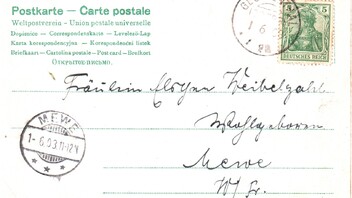 Postkarte — Carte postale
Weltpostverein - Union postale universelle
Dopisnice - Correspondenzkarte - Levelező-Lap
Karta korespondencyjna - Korespondenční listek
Briefkaart - Cartolina postale - Post card - Brefkort
ОТКРЫТОЕ ПИСЬМО.
5
DEUTSCHES REICH
1 6
Fräulein
Wohlgeboren
MEWE
1-6 03 11-12V
* * *
Mewe
W/Pr.